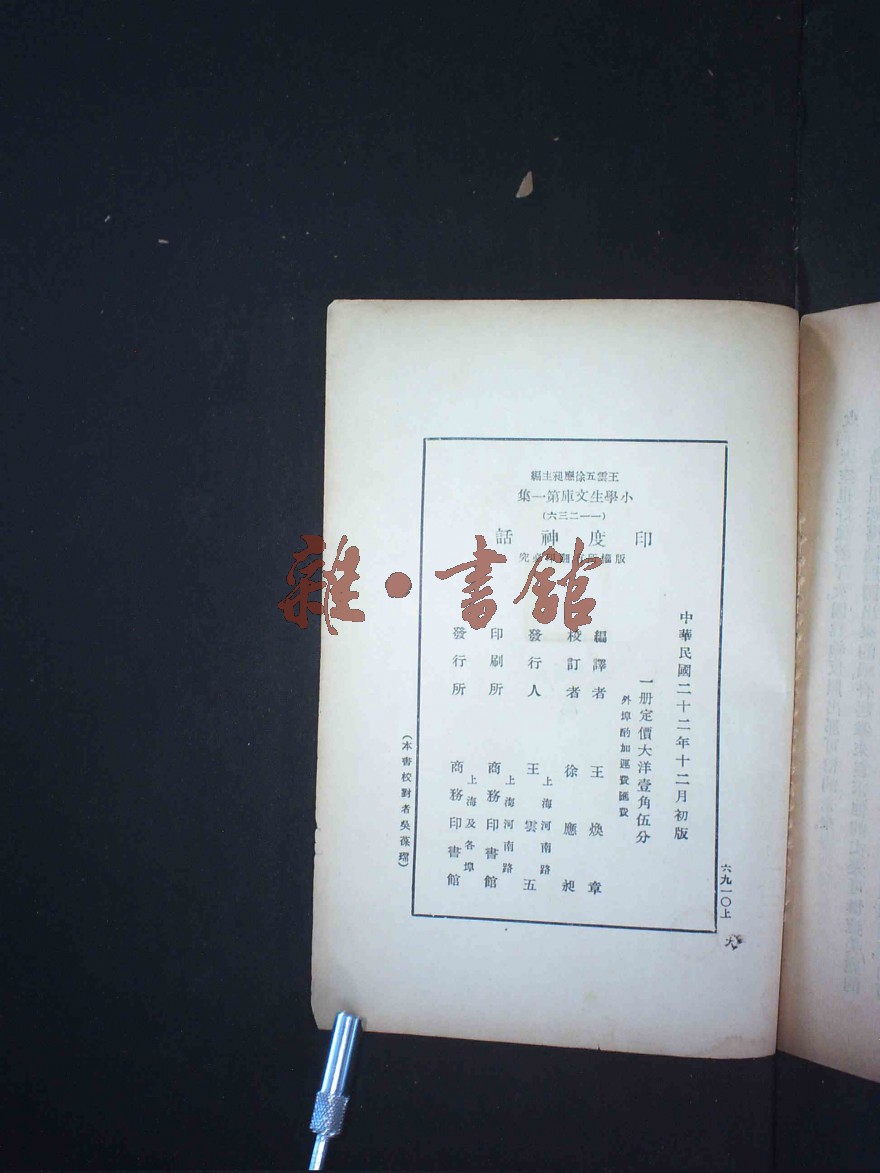 王雲五徐應昶主編
小學生文庫第一集
(一一二三六)
印度神話
版權所有翻印必究
中華民國二十二年十二月初版
一册定價大洋壹角伍分
外埠酌加運費匯費
編譯者 王煥章
校訂者 徐應昶
發行人 王雲五
上海河南路
印刷所 商務印書館
上海河南路
發行所 商務印書館
上海及各埠
(本書校對者吳藻瑺)
六九一〇上
大
雜·書館